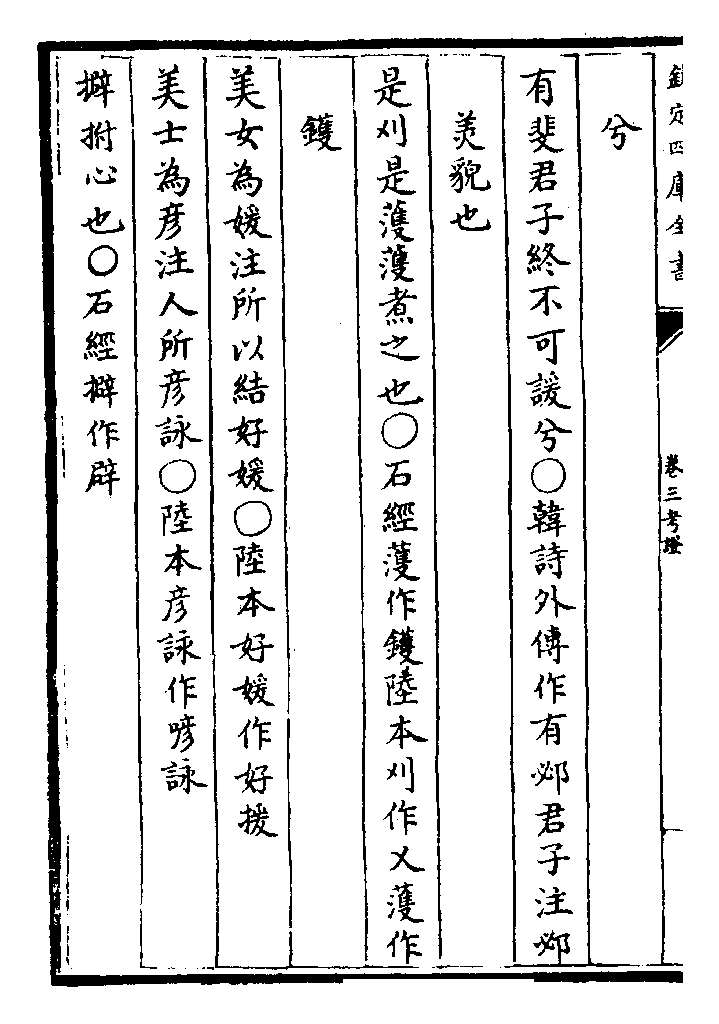 欽定四庫全書
卷三考證
兮
有斐君子終不可諼兮〇韓詩外傳作有邲君子注邲
美貌也
是刈是蒦蒦煮之也〇石經蒦作鑊陸本刈作乂蒦作
鑊
美女為媛注所以結好媛〇陸本好媛作好援
美士為彦注人所彦詠〇陸本彦詠作喭詠
擗拊心也〇石經擗作辟